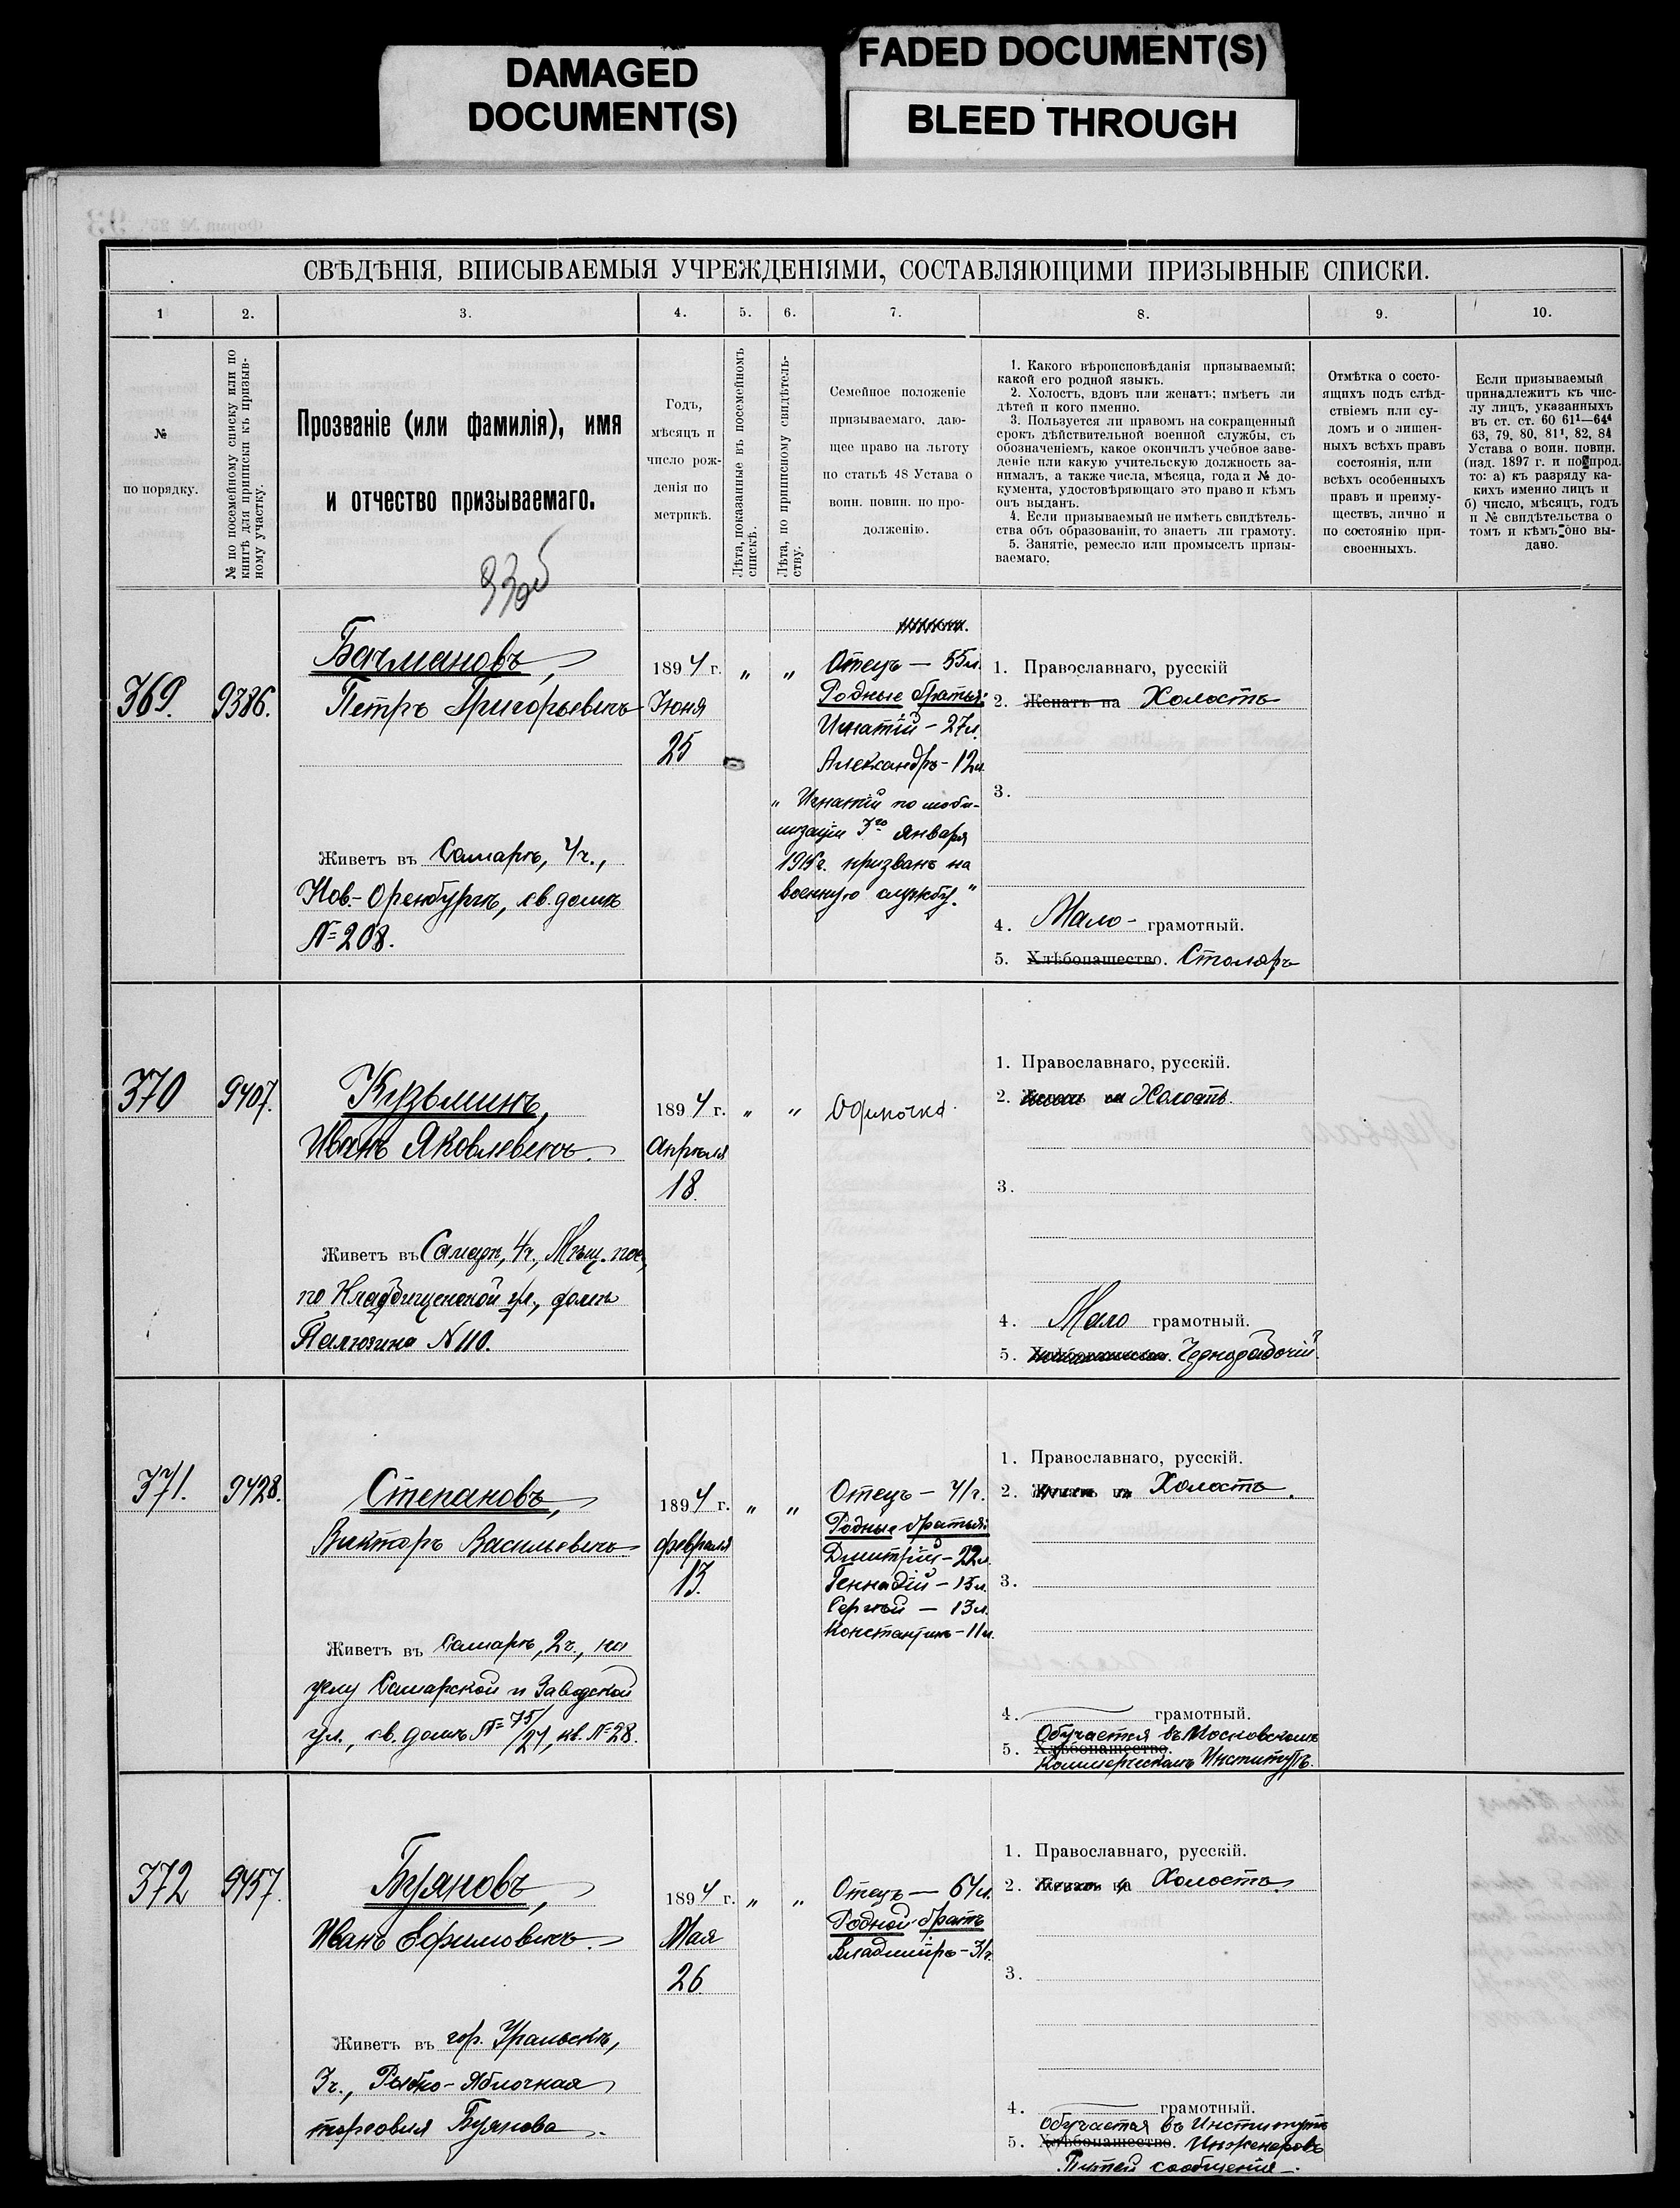 DAMAGED
DOCUMENT(S)
FADED DOCUMENT(S)
BLEED THROUGH
СВѢДѢНІЯ, ВПИСЫВАЕМЫЯ УЧРЕЖДЕНІЯМИ, СОСТАВЛЯЮЩИМИ ПРИЗЫВНЫЕ СПИСКИ.
1
2.
3.
4.
5.
6.
7.
8.
9.
10.
№
по порядку.
№ по посемейному списку или по
книгѣ для приписки къ призыв-
ному участку.
Прозваніе (или фамилія), имя
и отчество призываемаго.
Годъ,
мѣсяцъ и
число рож-
денія по
метрикѣ.
Лѣта, показанные въ посемейномъ
спискѣ.
Лѣта, по приписному свидѣтель-
ству.
Семейное положеніе
призываемаго, даю-
щее право на льготу
по статьѣ 48 Устава о
воин. повин. по про-
долженію.
1. Какого вѣроисповѣданія призываемый;
какой его родной языкъ.
2. Холостъ, вдовъ или женатъ; имѣетъ ли
дѣтей и кого именно.
3. Пользуется ли правомъ на сокращенный
срокъ дѣйствительной военной службы, съ
обозначеніемъ, какое окончилъ учебное заве-
деніе или какую учительскую должность за-
нималъ, а также числа, мѣсяца, года и № до-
кумента, удостовѣряющаго это право и кѣмъ
онъ выданъ.
4. Если призываемый не имѣетъ свидѣтель-
ства объ образованіи, то знаетъ ли грамоту.
5. Занятіе, ремесло или промыселъ призы-
ваемаго.
Отмѣтка о состо-
ящихъ подъ слѣд-
ствіемъ или су-
домъ и о лишен-
ныхъ всѣхъ правъ
состоянія, или
всѣхъ особенныхъ
правъ и преиму-
ществъ, лично и
по состоянію при-
своенныхъ.
Если призываемый
принадлежитъ къ чис-
лу лицъ, указанныхъ
въ ст. ст. 60 61¹—64⁴
63, 79, 80, 81¹, 82, 84
Устава о воин. повин.
(изд. 1897 г. и по прод.
то: а) къ разряду ка-
кихъ именно лицъ и
б) число, мѣсяцъ, годъ
и № свидѣтельства о
томъ и кѣмъ оно вы-
дано.
33об
369.
9386.
Бачмановъ,
Петръ Григорьевичъ
Живетъ въ Самарѣ, 4ч.,
Нов.-Оренбургк, св. домъ
№ 208.
1894 г.
Іюня
25
"
"
Отецъ — 55л.
Родные братья:
Игнатій - 27л.
Александръ - 12л.
" Игнатій по моби-
лизаціи 3го Января
1915г. призванъ на
военную службу."
1. Православнаго, русскій
2. Женатъ на Холостъ
3.
4. Мало-грамотный.
5. Хлѣбопашество. Столяръ
370
9407.
Кузьминъ,
Иванъ Яковлевичъ.
Живетъ въ Самарѣ, 4ч., Мѣщ. пос.,
по Кладбищенской ул., домъ
Палюзина № 110.
1894 г.
Апрѣля
18.
"
"
Одиночка.
1. Православнаго, русскій.
2. Женатъ на Холостъ.
3.
4. Мало грамотный.
5. Хлѣбопашество. Чернорабочій.
371.
9428.
Степановъ,
Викторъ Васильевичъ
Живетъ въ Самарѣ, 2ч., на
углу Самарской и Заводской
ул., св. домъ № 75/27, кв. № 28.
1894 г.
февраля
13.
"
"
Отецъ — 41г.
Родные братья:
Дмитрій - 22л.
Геннадій - 15л.
Сергѣй — 13л.
Константинъ - 11л.
1. Православнаго, русскій.
2. Женатъ на Холостъ.
3.
4. грамотный.
Обучается въ Московскомъ
5. Хлѣбопашество.
Коммерческомъ Институтѣ.
372
9457.
Буяновъ,
Иванъ Ефимовичъ.
Живетъ въ гор. Уральскѣ,
3ч., Рыбно-Яблочная
торговля Буянова.
1894 г.
Мая
26
"
"
Отецъ — 64л.
Родной братъ
Владиміръ - 31г.
1. Православнаго, русскій.
2. Женатъ на Холостъ.
3.
4. грамотный.
Обучается въ Институтѣ
5. Хлѣбопашество. Инженеровъ
Путей сообщенія.